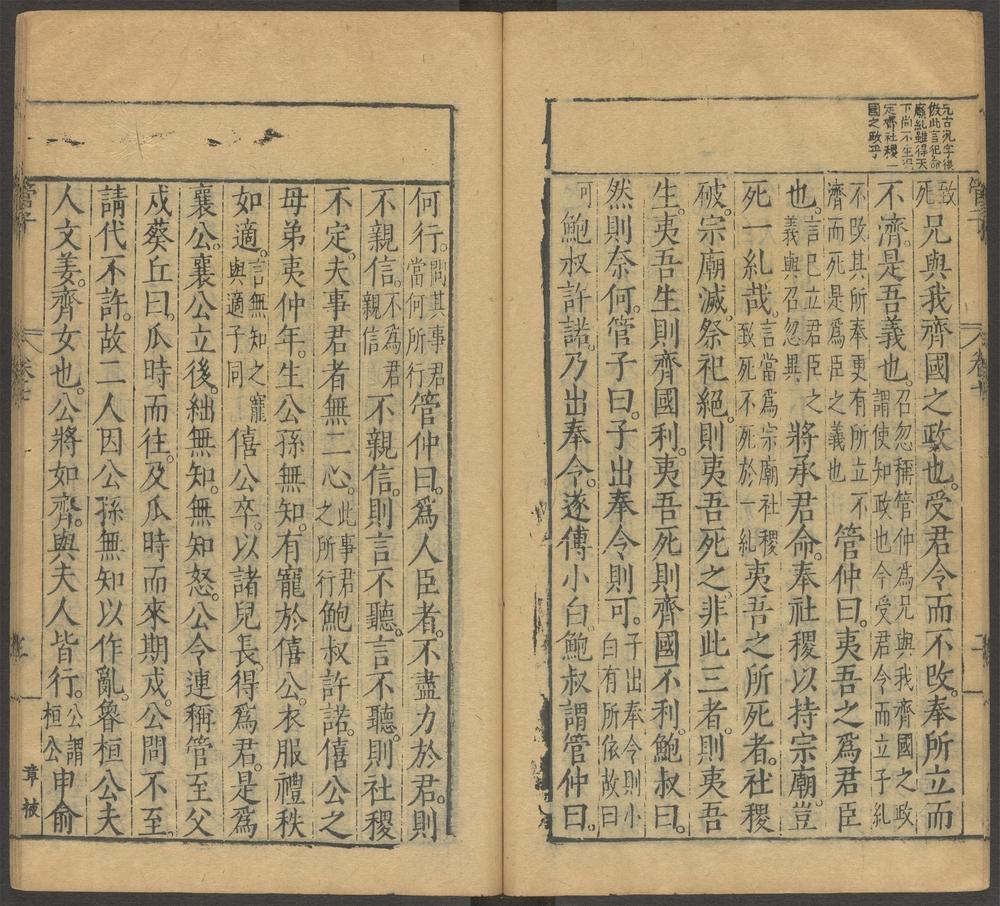 兄古况字後
倣此言犯命
廢糾雖得天
下尚不生况
定齊社稷一
國之政乎
致死兄與我齊國之政也。受君令而不改。奉所立而
不濟。是吾義也。召忽稱管仲爲兄與我齊國之政謂使知政也今受君令而立子糾
不改其所奉更有所立不濟而死是爲臣之義也管仲曰。夷吾之爲君臣
也。言已立君臣之義與召忽異將承君命。奉社稷以持宗廟。豈
死一糾哉。言當爲宗廟社稷致死不死於一糾夷吾之所死者。社稷
破。宗廟滅。祭祀絕。則夷吾死之。非此三者。則夷吾
生。夷吾生則齊國利。夷吾死則齊國不利。鮑叔曰。
然則奈何。管子曰。子出奉令則可。子出奉令則小白有所依故曰
可鮑叔許諾。乃出奉令。遂傅小白。鮑叔謂管仲曰。
何行。問其事君當何所行管仲曰。爲人臣者。不盡力於君。則
不親信。不爲君親信不親信。則言不聽。言不聽。則社稷
不定。夫事君者無二心。此事君之所行鮑叔許諾。僖公之
母弟夷仲年。生公孫無知。有寵於僖公。衣服禮秩
如適。言無知之寵與適子同僖公卒。以諸兒長。得爲君。是爲
襄公。襄公立後。絀無知。無知怒。公令連稱管至父
戍葵丘曰。瓜時而往。及瓜時而來。期戍。公問不至。
請代不許。故二人因公孫無知以作亂。魯桓公夫
人文姜。齊女也。公將如齊。與夫人皆行。公謂桓公申俞
管子
卷七
章